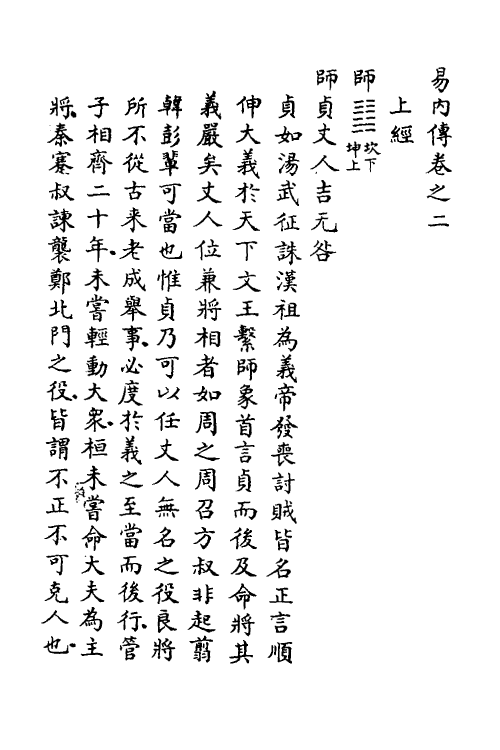 易內傳卷之二
上經
師 坎下坤上
師貞丈人吉无咎
貞如湯武征誅漢祖為義帝發喪討賊皆名正言順
伸大義於天下文王繫師象首言貞而後及命將其
義嚴矣丈人位兼將相者如周之周召方叔非起翦
韓彭輩可當也惟貞乃可以任丈人無名之役良將
所不從古来老成舉事必度於義之至當而後行管
子相齊二十年未嘗輕動大衆桓未嘗命大夫為主
將秦蹇叔諫襲鄭北門之役皆謂不正不可克人也